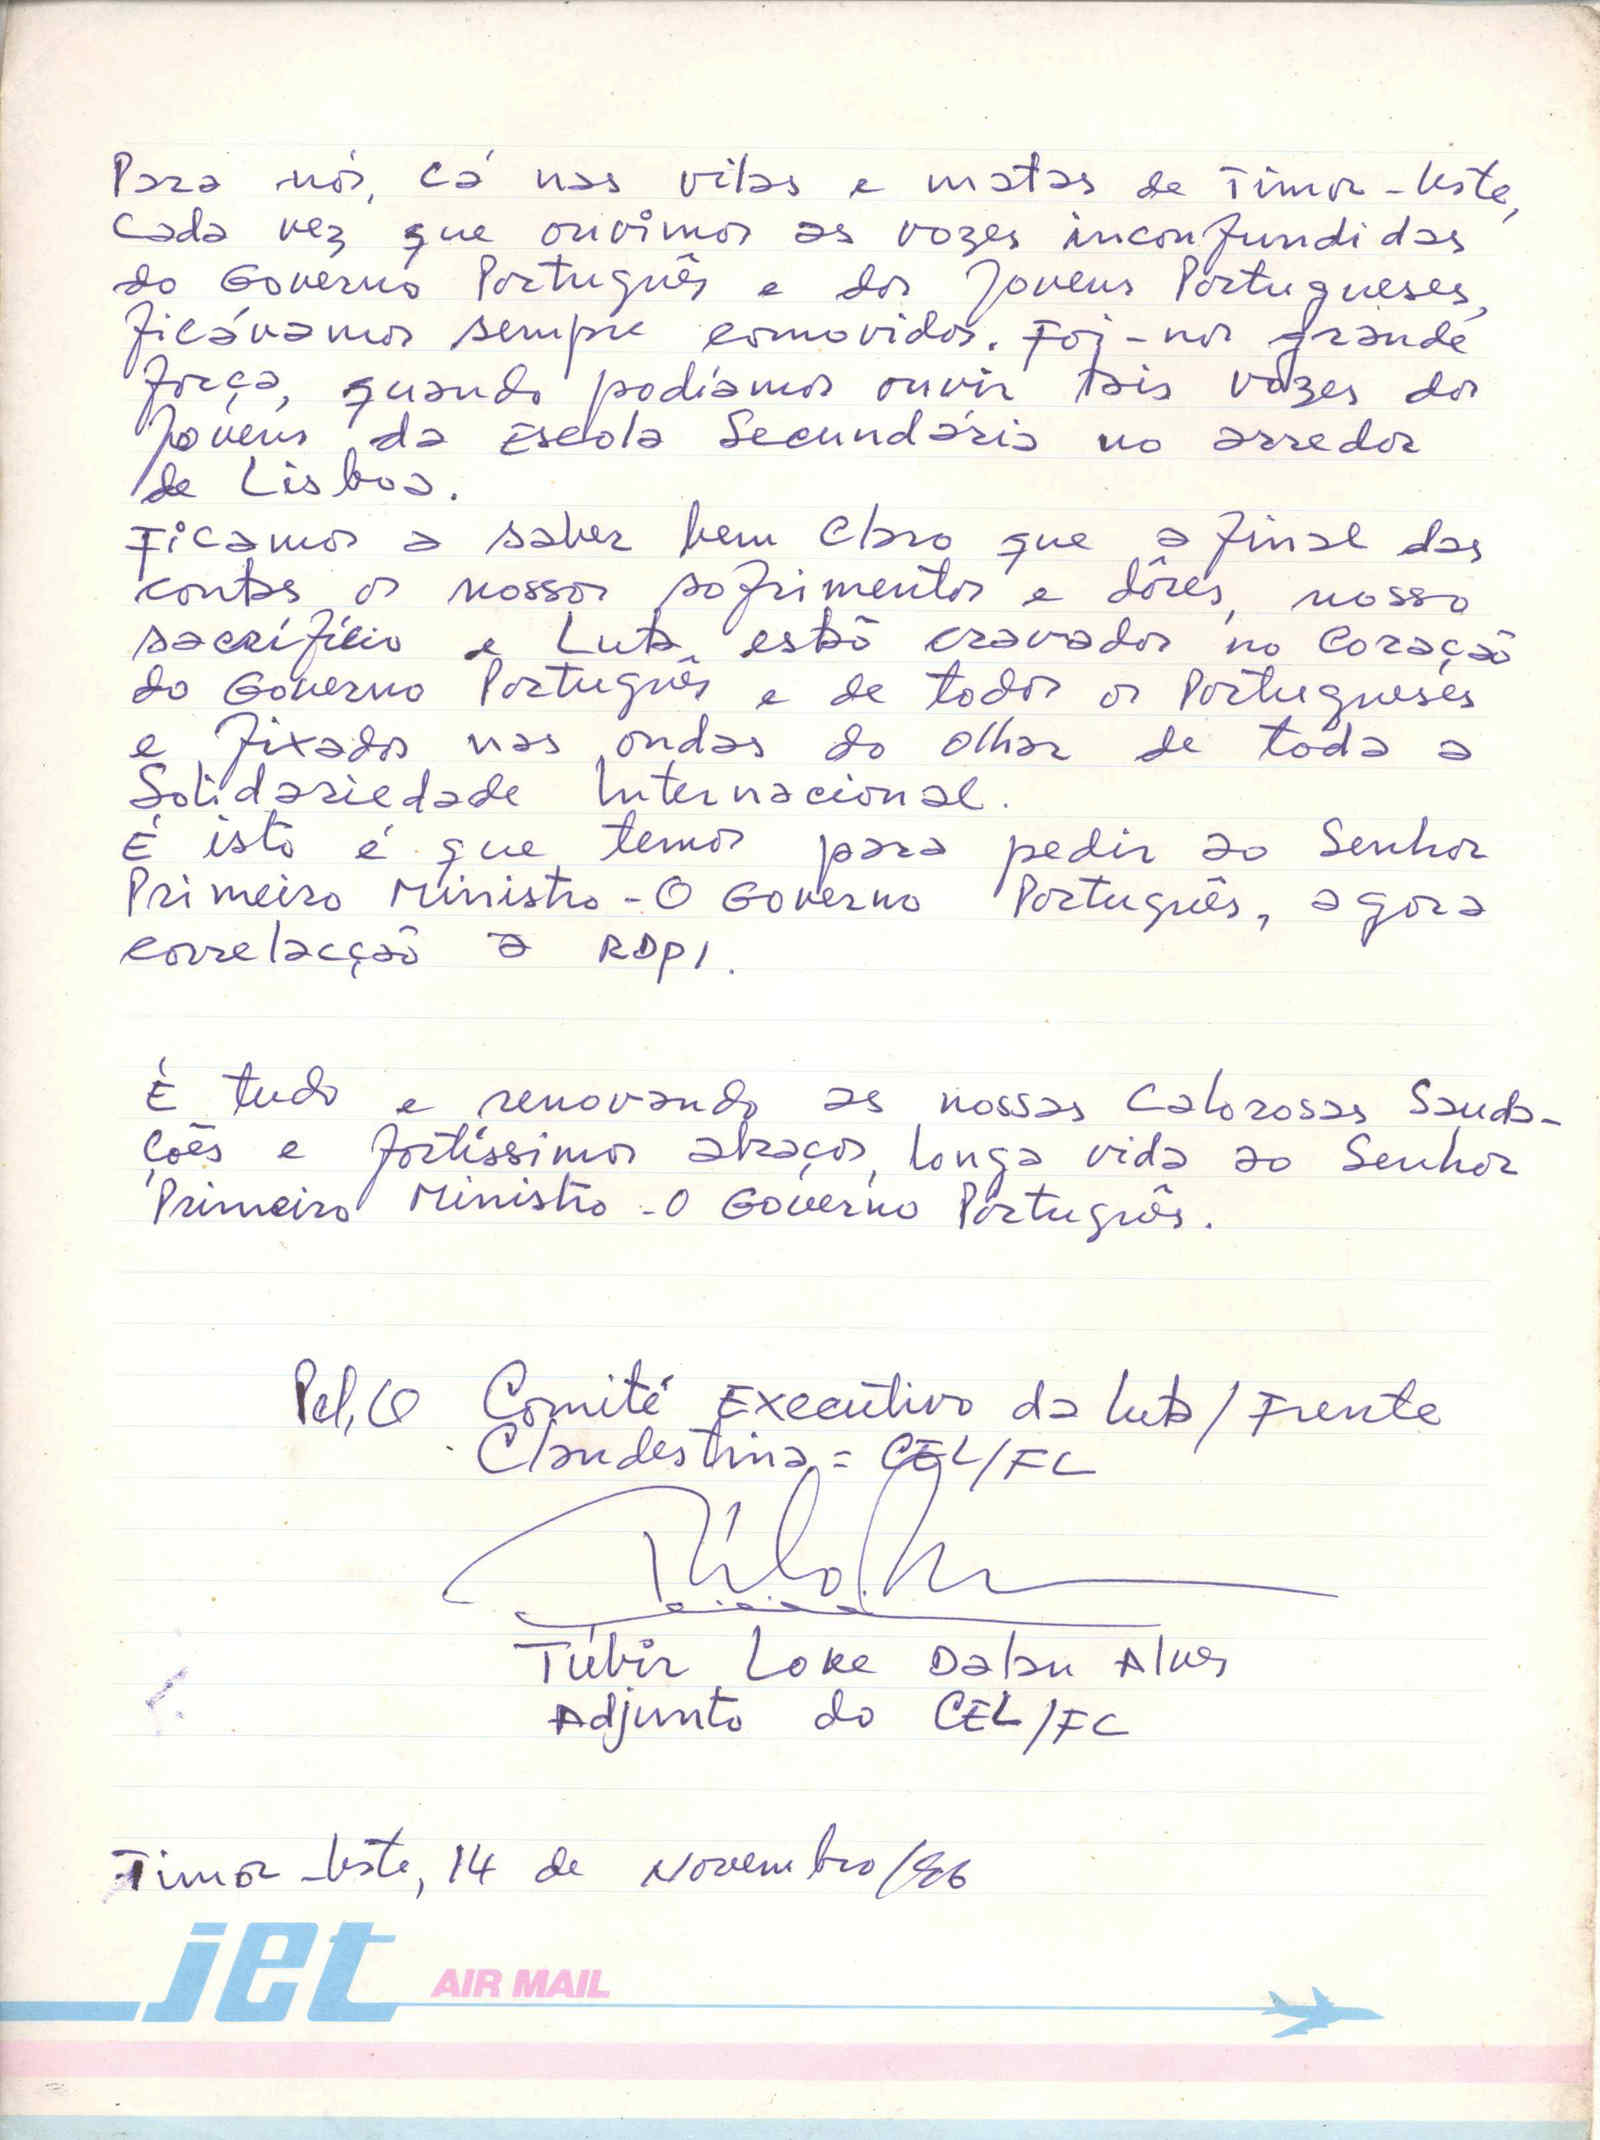 Para nós, cá nas vilas e matas de Timor-Leste,
cada vez que ouvimos as vozes inconfundidas
do Governo Português e dos Jovens Portugueses,
ficávamos sempre comovidos. Foi-nos grande
força, quando podíamos ouvir tais vozes dos
Jovens da Escola Secundária no arredor
de Lisboa.
Ficamos a saber bem claro que afinal das
contas os nossos sofrimentos e dôres, nosso
sacrifício e Luta, estão cravados no coração
do Governo Português e de todos os Portugueses
e fixados nas ondas do olhar de toda a
Solidariedade Internacional.
É isto é que temos para pedir ao Senhor
Primeiro Ministro - O Governo Português, agora
correlacção a RDPI.
É tudo e renovando as nossas calorosas Sauda-
ções e fortíssimos abraços, longa vida ao Senhor
Primeiro Ministro - O Governo Português.
Pel,O Comité Executivo da Luta/Frente
Clandestina = CEL/FC
Túbir Loke Dalan Alves
Adjunto do CEL/FC
Timor-Leste, 14 de Novembro/96
jet AIR MAIL